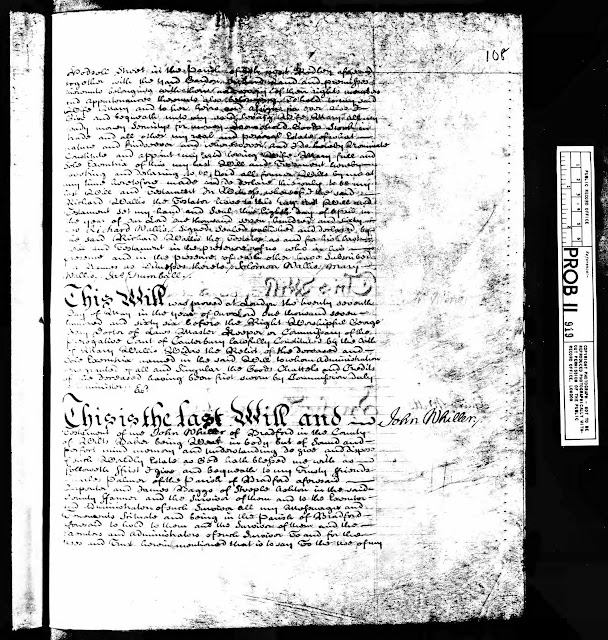 108
Street in the Parish of
together with the Yard Garden and premises
belonging with their rights members
and appurtenances to hold to my said
and to her heirs and for ever also I
Give and bequeath unto my said loving Wife Mary all my
money Security for money Household Goods Stock in
trade and all other my real and personal Estate of what
nature and kind soever and wheresoever and I do hereby nominate
Constitute and appoint my said loving Wife Mary full and
sole Executrix of this my last Will and Testament hereby
revoking and declaring to be void all former Wills by me at
any time heretofore made and do declare this only to be my
last Will and Testament In Witness whereof I the said
Richard Wallis the Testator have to this my last Will and
Testament set my hand and Seal this Eighth day of April in
the year of our Lord one thousand seven hundred and sixty
Richard Wallis Signed Sealed published and declared by
the said Richard Wallis the Testator as and for his last
Will and Testament in the presence of us who in his
presence and in the presence of each other have subscribed
our Names as Witnesses thereto Solomon Wallis Mary
Wallis
This Will was proved at London the twenty seventh
day of May in the year of our Lord one thousand seven
hundred and sixty six before the Right Worshipful George
Hay Doctor of Laws Master Keeper or Commissary of the
Prerogative Court of Canterbury lawfully Constituted by the Oath
of Mary Wallis Widow the Relict of the deceased and
sole Executrix named in the said Will to whom Administration
was granted of all and Singular the Goods Chattels and Credits
of the deceased having been first sworn by Commission duly
to administer
This is the last Will and
John Whiller
Testament of me John Whiller of Bradford in the County
of Wilts Baker being Weak in body but of Sound and
perfect mind memory and understanding do give and dispose
such Worldly Estate as God hath blessed me with as
followeth first I give and bequeath to my trusty friends
Palmer of the Parish of Bradford aforesaid
Carpenter and James Slagge of Steeple Ashton in the said
County and the Survivor of them and to the Executor
and Administrators of such Survivor all my Messuages and
Tenements Situate and being in the Parish of Bradford
aforesaid to hold to them and the Survivor of them and the
Executors and Administrators of such Survivor To and for the
Uses and Trust herein mentioned that is to say To the Use of my
PUBLIC RECORD OFFICE
Reference:-
PROB 11
919
COPYRIGHT PHOTOGRAPH - NOT TO BE
REPRODUCED PHOTOGRAPHICALLY WITHOUT
PERMISSION OF THE PUBLIC
RECORD OFFICE, LONDON